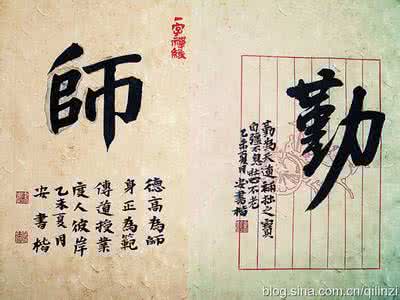 一字禪緣
勤
勤為天道補拙之寶
自彊不息
不老
乙未夏月
安書楷
師
德高為師
身正為範
傳道授業
度人彼岸
乙未夏月
安書楷
blog.sina.com.cn/qilinzi